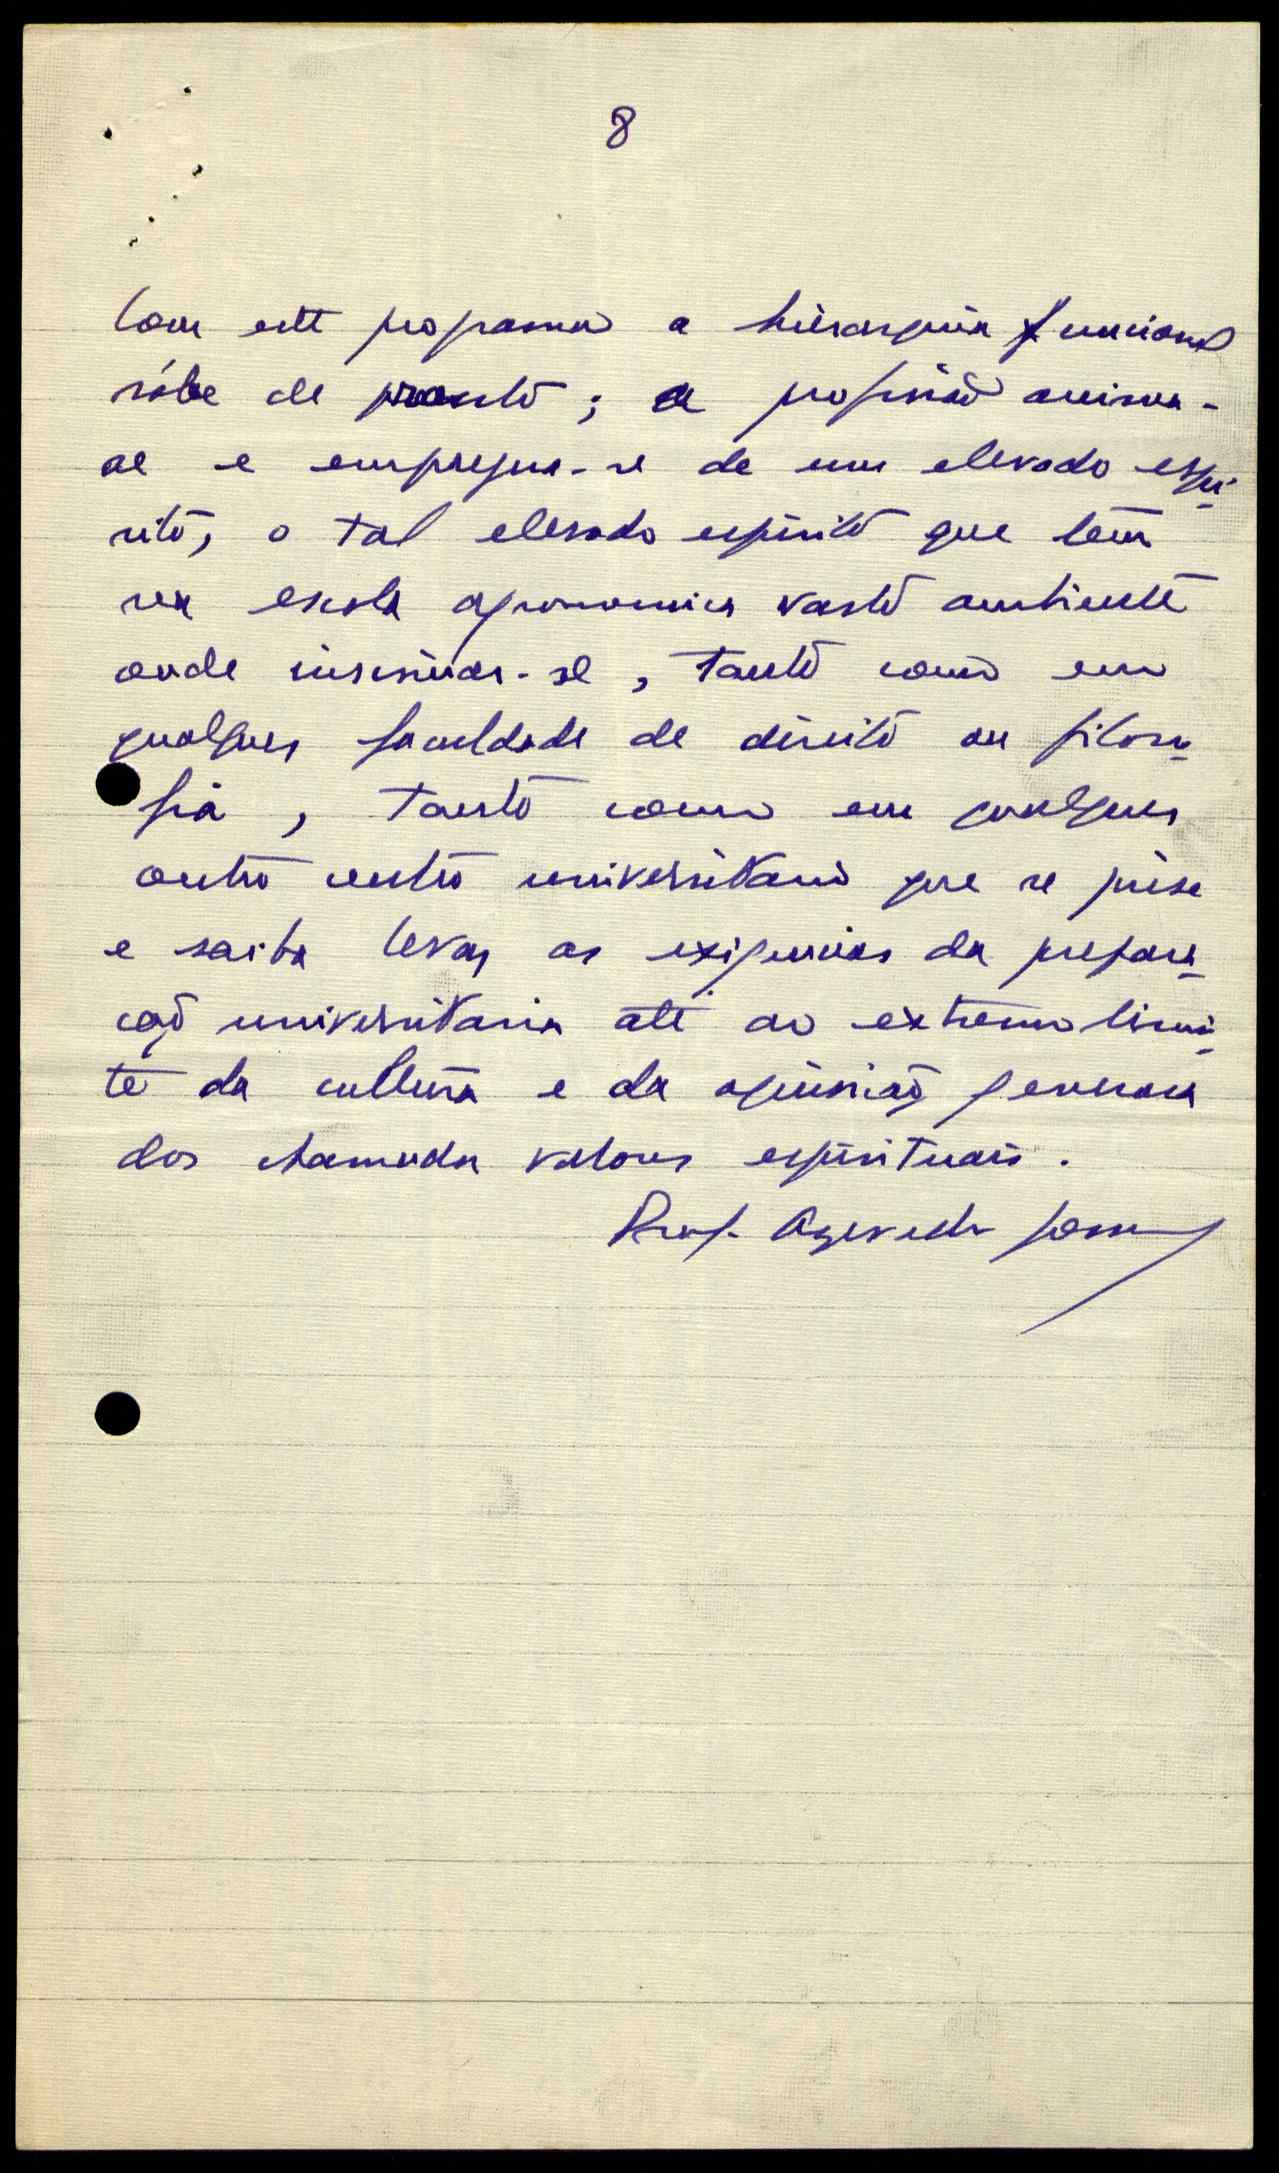 8
Com este programa a hierarquia funcional
sóbe de pronto; a profissão anima-
se e empregna-se de um elevado espi-
rito, o tal elevado espirito que tem
na escola agronomica vasto ambiente
onde insinuar-se, tanto como em
qualquer faculdade de direito ou filoso-
fia, tanto como em qualquer
outro centro universitario que se prese
e saiba levar as exigencias da prepara-
ção universitaria até ao extremo limi-
te da cultura e da opinião generosa
dos chamados valores espirituais.
Prof. Azevedo Gomes